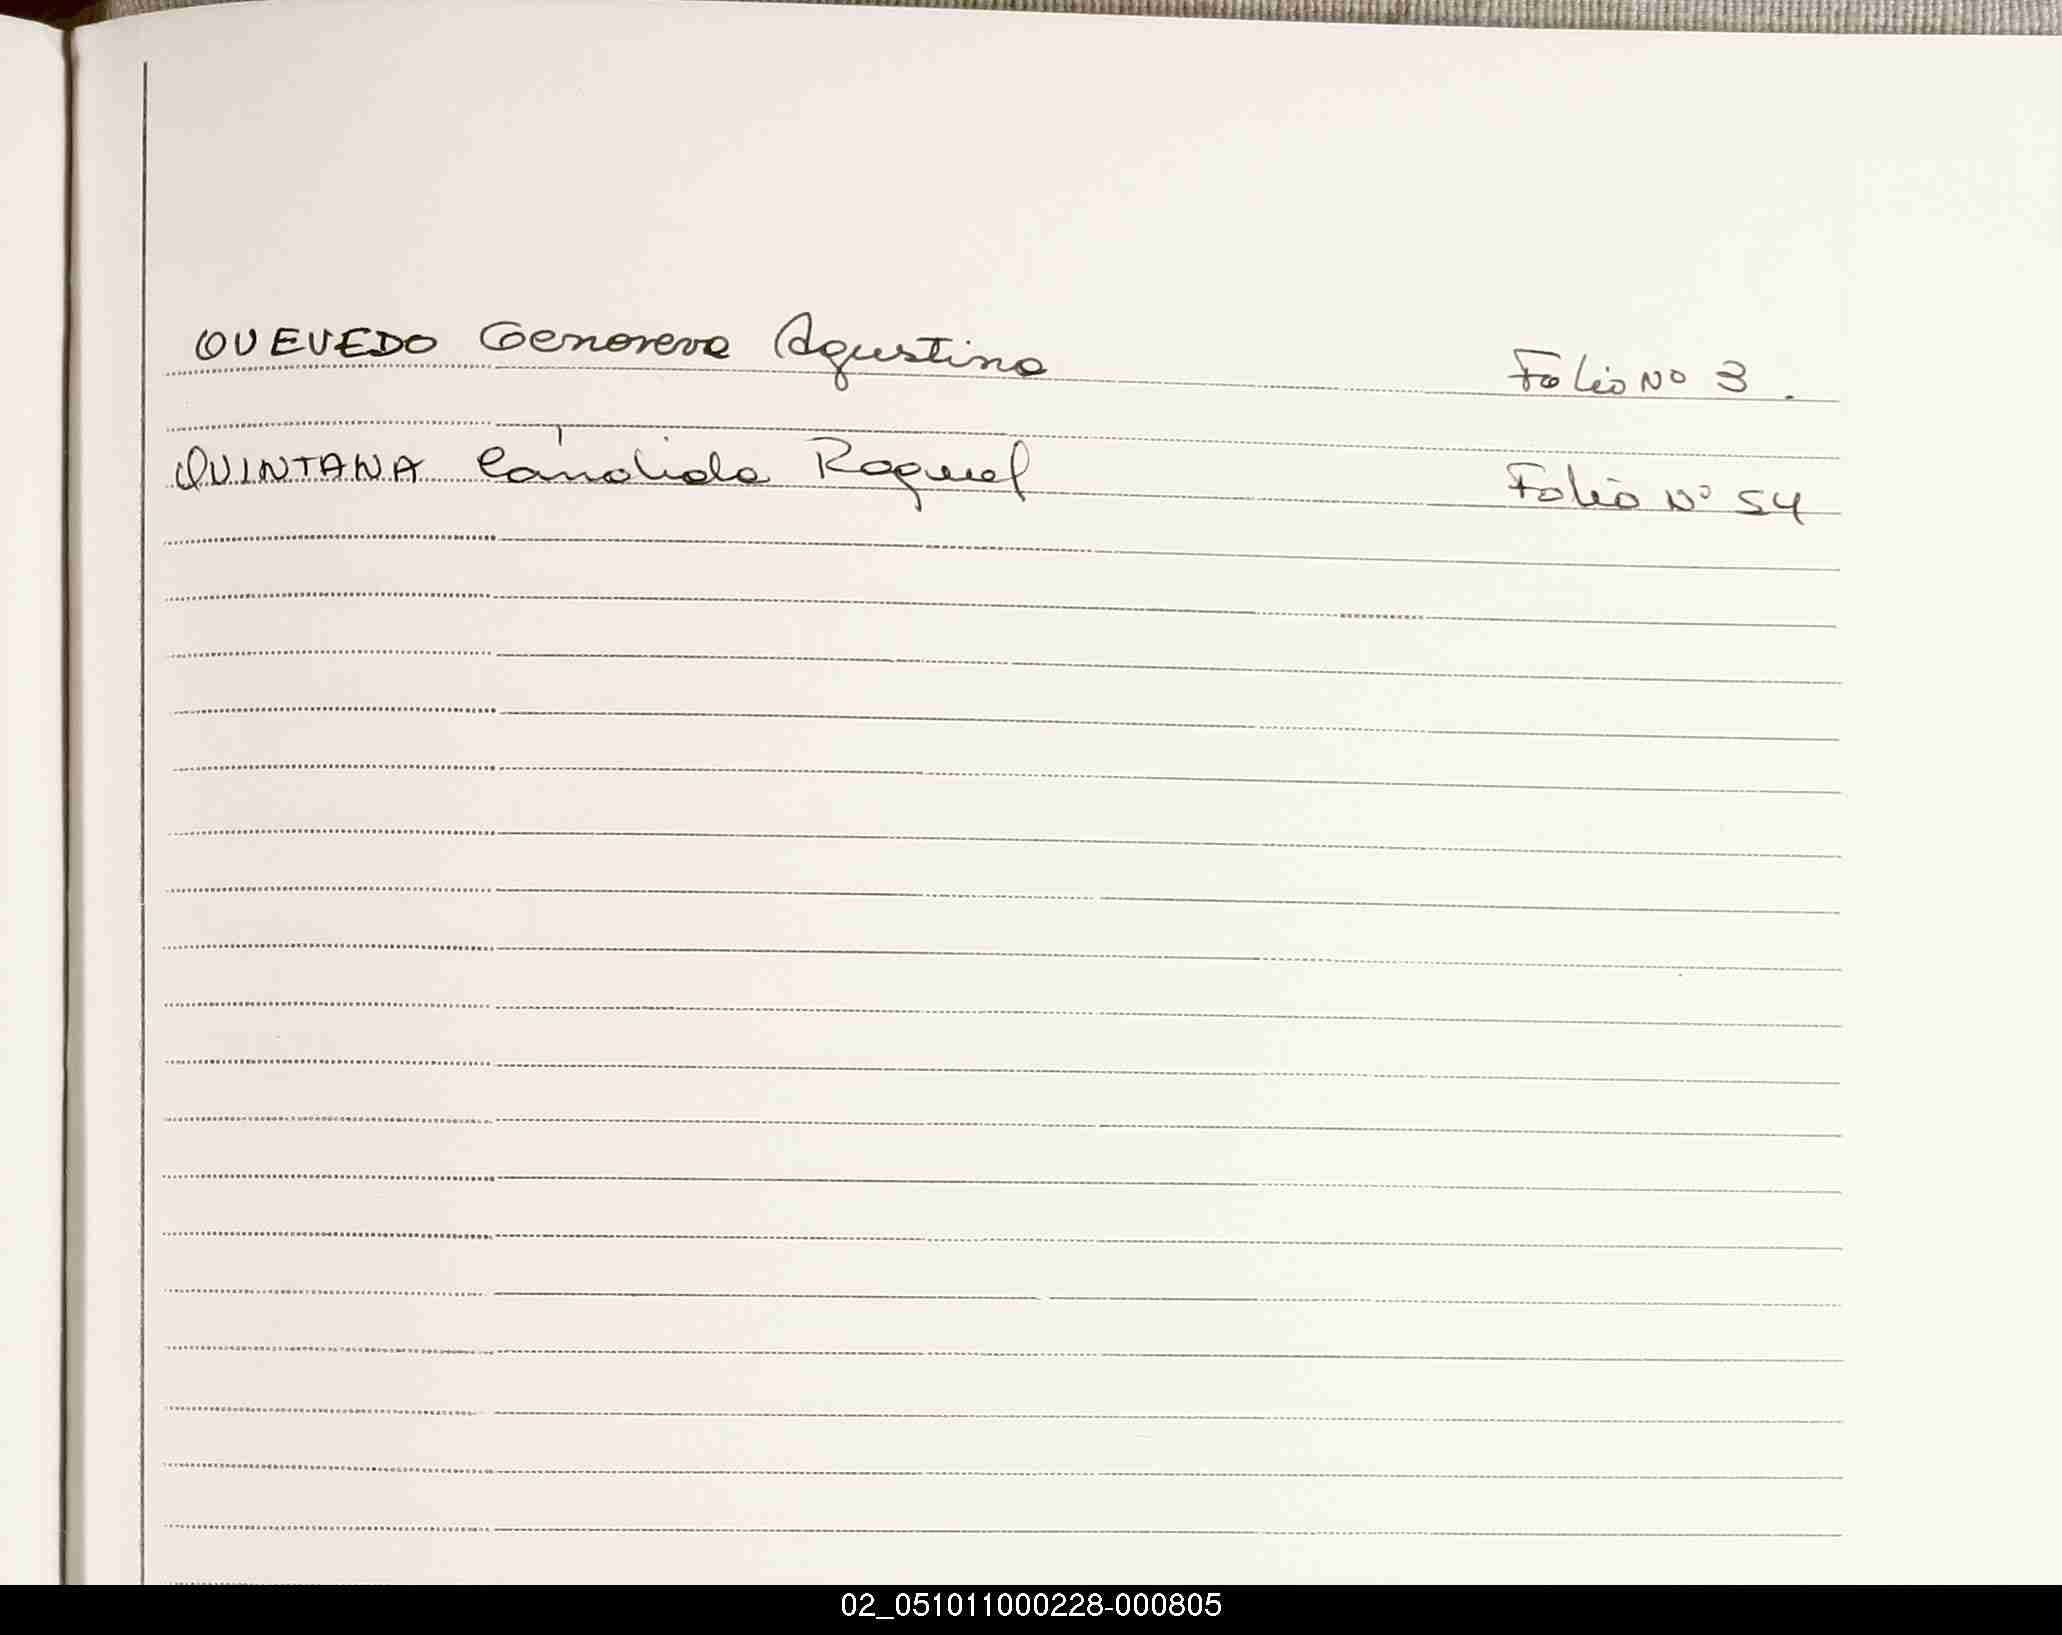 QUEVEDO Genoveva Agustina Folio Nº 3.
QUINTANA Cándida Raquel Folio Nº 54
02_051011000228-000805